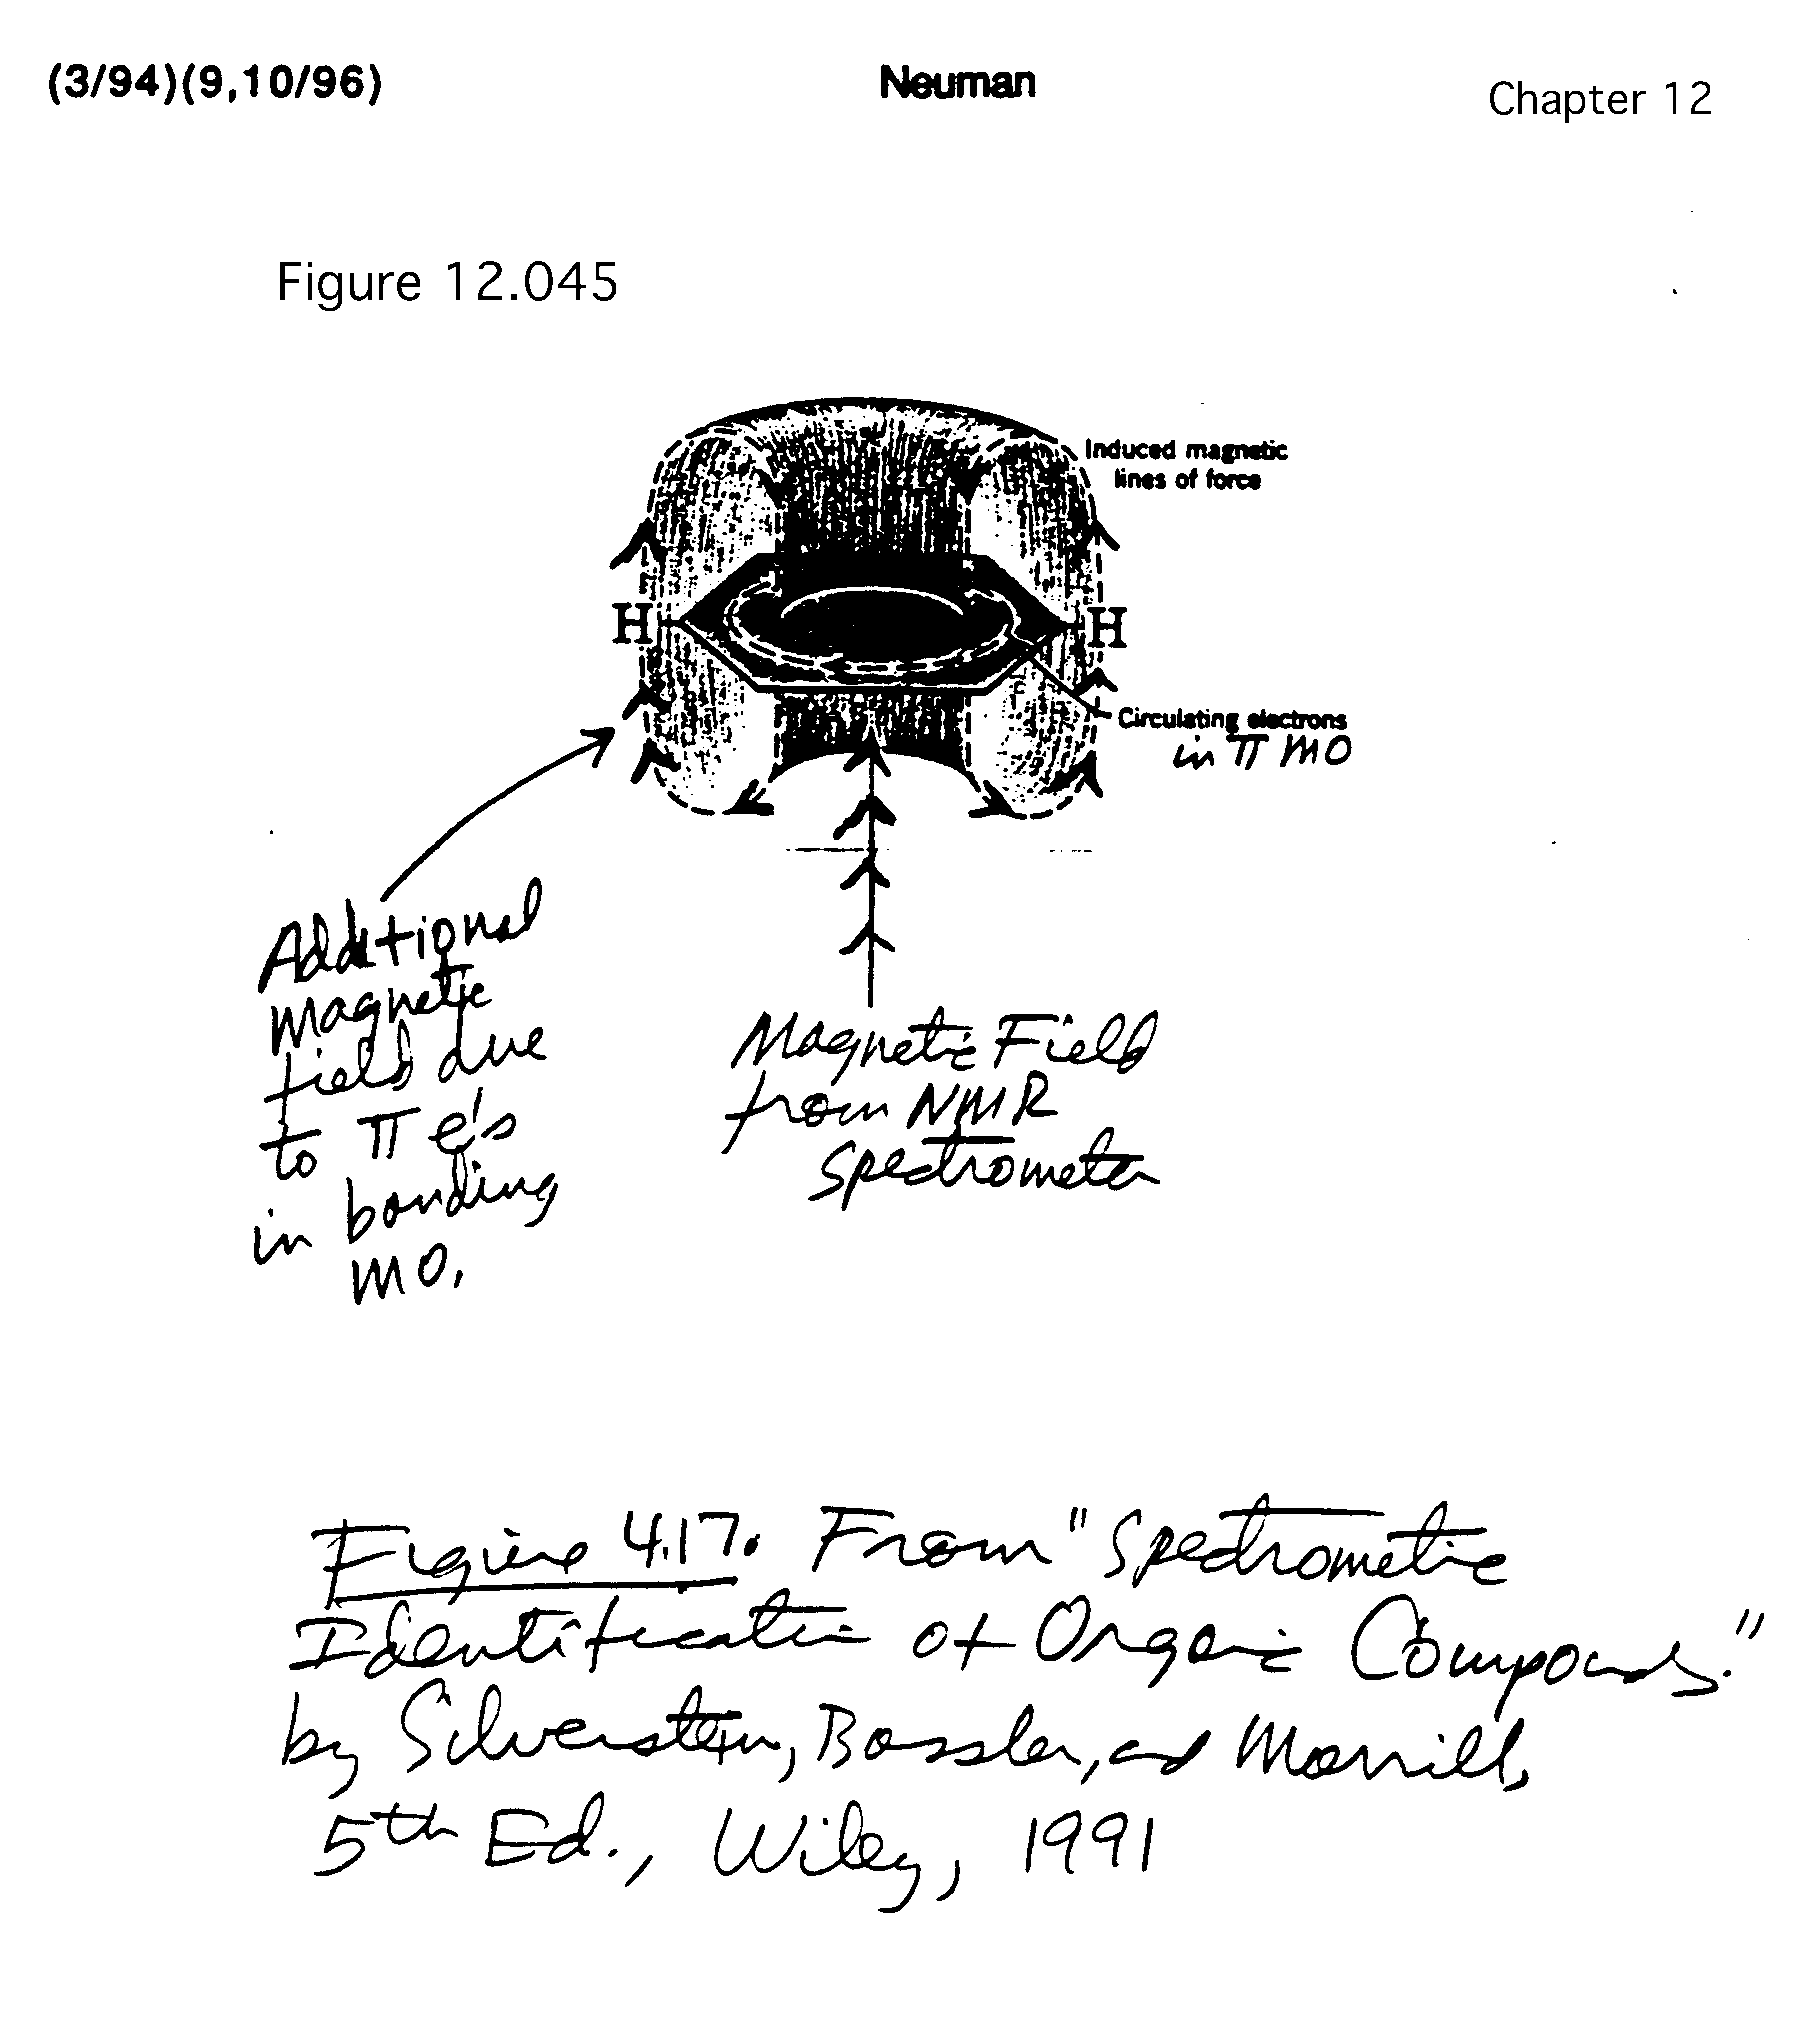 (3/94)(9,10/96)
Neuman
Chapter 12
Figure 12.045
Induced magnetic
lines of force
H
H
Circulating electrons
in π MO
Additional
magnetic
field due
to π e's
in bonding
MO.
Magnetic Field
from NMR
Spectrometer
Figure 4.17. From "Spectrometric
Identification of Organic Compounds."
by Silverstein, Bassler, and Morrill,
5th Ed., Wiley, 1991